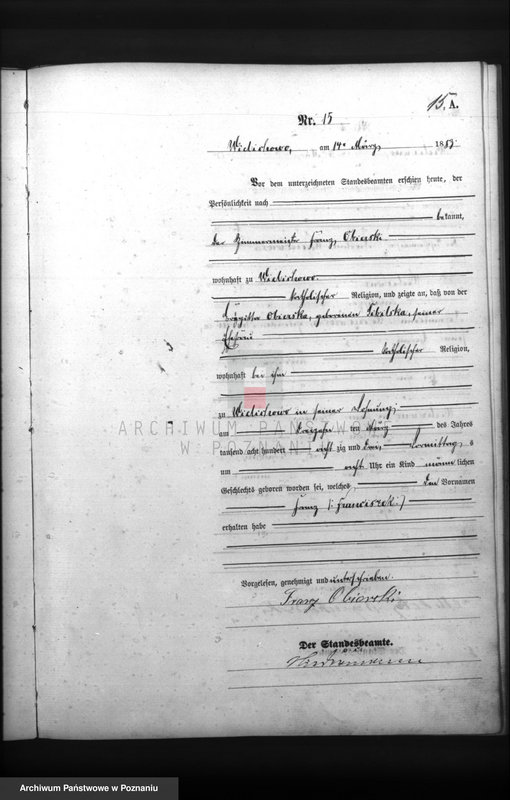 15. A.
Nr. 15
Wielichowo, am 14. März 1883.
Vor dem unterzeichneten Standesbeamten erschien heute, der
Persönlichkeit nach
bekannt,
der Zimmermeister Franz Obierski
wohnhaft zu Wielichowo
katholischer Religion, und zeigte an, daß von der
Obierska, geborenen seiner
Ehefrau
katholischer Religion,
wohnhaft bei ihm
zu Wielichowo in seiner Wohnung,
am dreizehn ten März des Jahres
tausend acht hundert acht zig und drei Vormittag s
um acht Uhr ein Kind männ lichen
Geschlechts geboren worden sei, welches den Vornamen
Franz (: Franciszek :)
erhalten habe
Vorgelesen, genehmigt und unterschrieben.
Franz Obierski
Der Standesbeamte.
ARCHIWUM PAŃSTWOWE
W POZNANIU
Archiwum Państwowe w Poznaniu